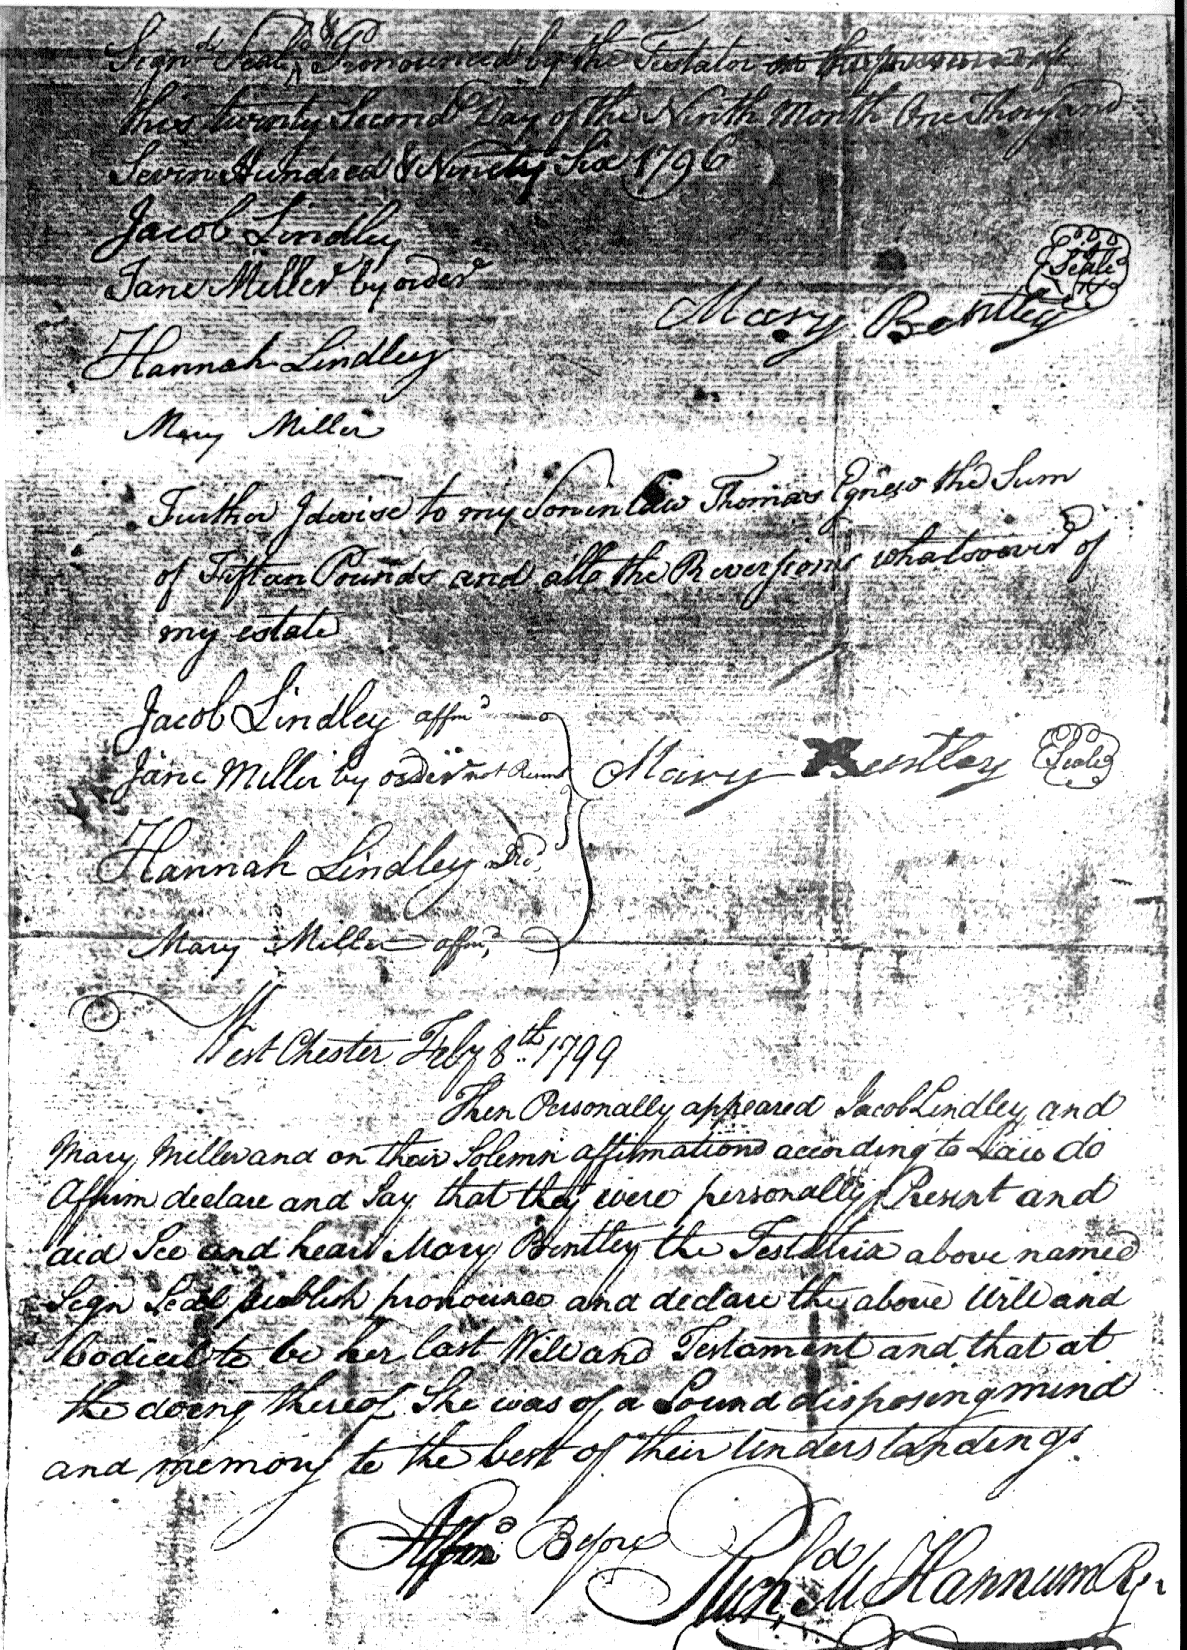 Signd Seald & Pronounced by the Testator in the presence of us
this twenty Second Day of the Ninth Month One Thousand
Seven Hundred & Ninety Six 1796
Jacob Lindley
Jane Miller by order
Seale
Mary Bentley
Hannah Lindley
Mary Miller
Further I devise to my Son in Law Thomas Egnew the Sum
of Fifteen Pounds and allso the Reversions whatsoever of
my estate
Jacob Lindley affmd
Jane Miller by order not
Mary Bentley
Seale
Hannah Lindley
Mary Miller affmd
West Chester Feby 8th 1799
Then Personally appeared Jacob Lindley and
Mary Miller and on their Solemn affirmations according to Law do
Affirm declare and Say that they were personally Present and
did See and hear Mary Bentley the Testatrix above named
Sign Seal publish pronounce and declare the above Will and
Codicil to be her last Will and Testament and that at
the doing thereof She was of a Sound disposing mind
and memory to the best of their Understandings
Affmd Before
Richd M Hannum Regr